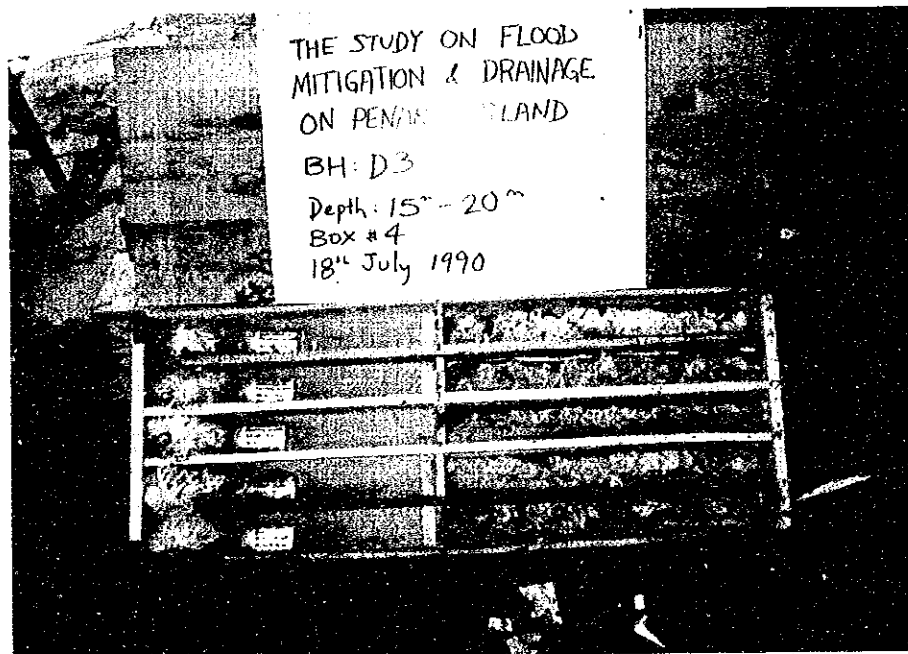 THE STUDY ON FLOOD
MITIGATION & DRAINAGE
ON
BH: D3
Depth: 15m - 20m
Box #4
18th July 1990